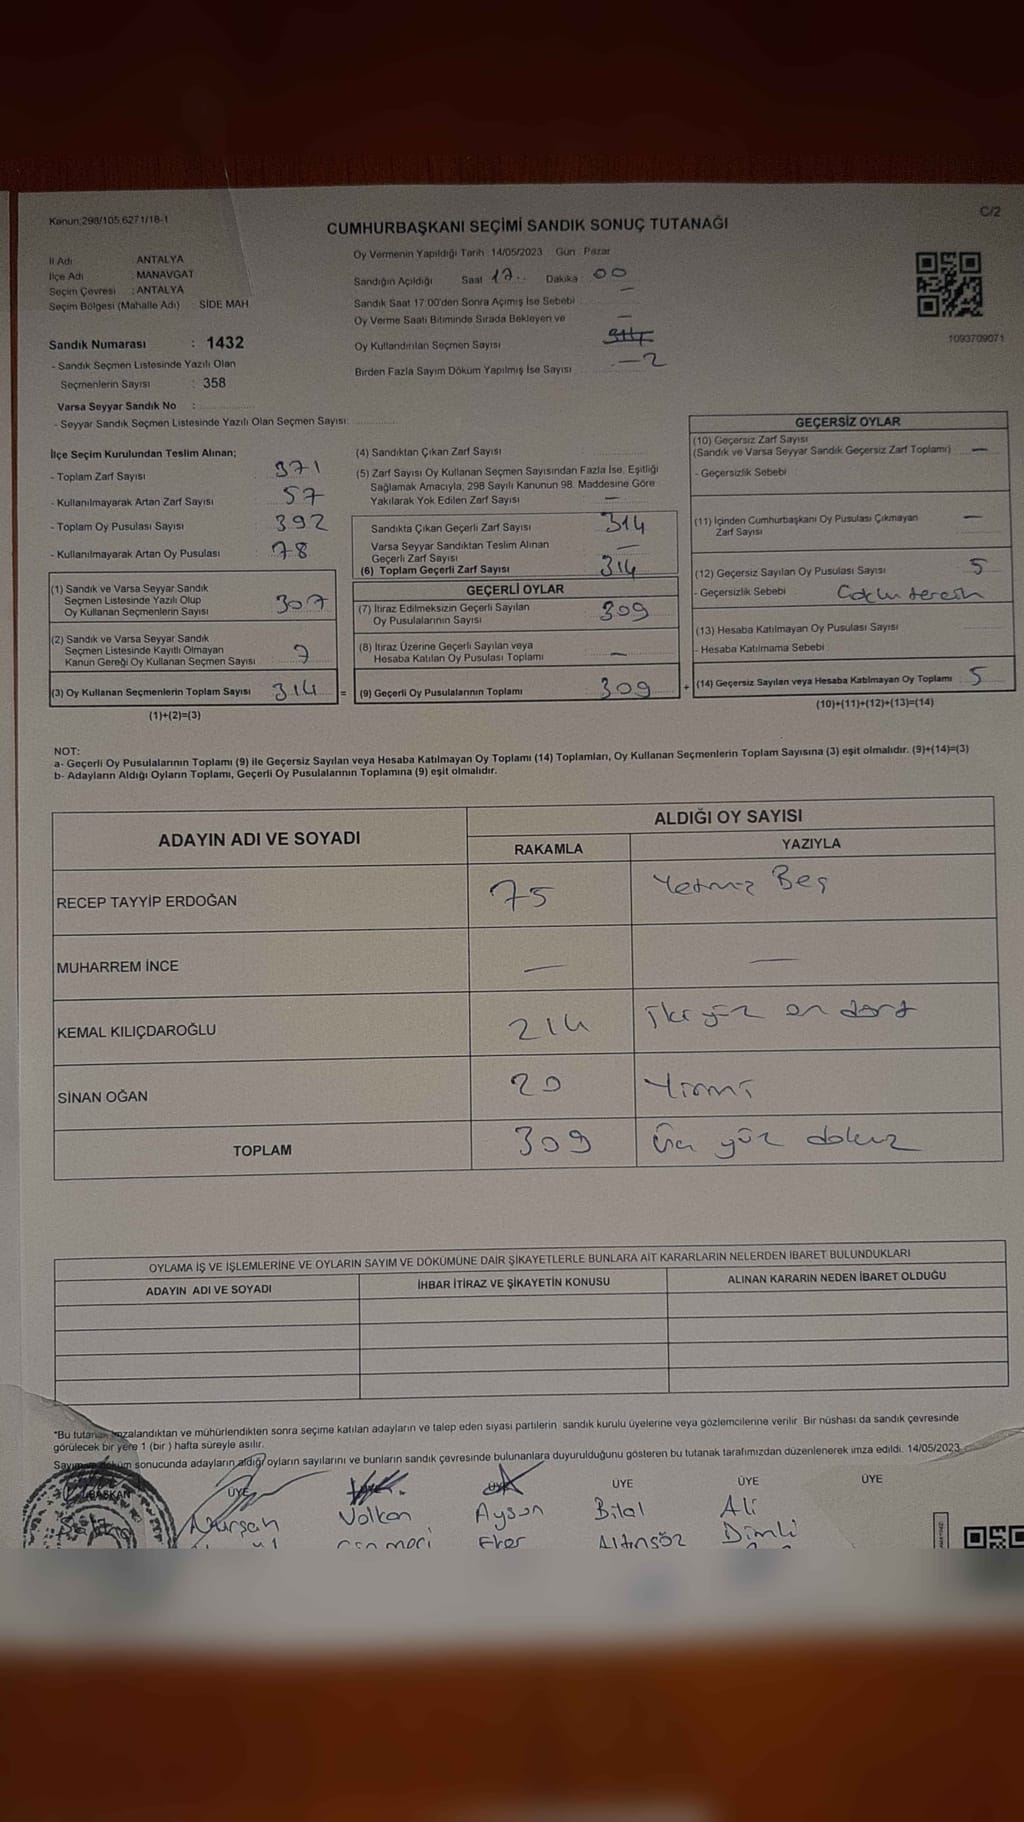 Kanun:298/105,6271/18-1
C/2
CUMHURBAŞKANI SEÇİMİ SANDIK SONUÇ TUTANAĞI
İl Adı : ANTALYA
İlçe Adı : MANAVGAT
Seçim Çevresi : ANTALYA
Seçim Bölgesi (Mahalle Adı) SİDE MAH.
Sandık Numarası : 1432
- Sandık Seçmen Listesinde Yazılı Olan
Seçmenlerin Sayısı : 358
Varsa Seyyar Sandık No :
- Seyyar Sandık Seçmen Listesinde Yazılı Olan Seçmen Sayısı:
Oy Vermenin Yapıldığı Tarih : 14/05/2023 Gün : Pazar
Sandığın Açıldığı Saat 17.. Dakika 00
Sandık Saat 17:00'den Sonra Açımış İse Sebebi —
Oy Verme Saati Bitiminde Sırada Bekleyen ve —
Oy Kullandırılan Seçmen Sayısı
Birden Fazla Sayım Döküm Yapılmış İse Sayısı —2
1093709071
İlçe Seçim Kurulundan Teslim Alınan;
- Toplam Zarf Sayısı 371
- Kullanılmayarak Artan Zarf Sayısı 57
- Toplam Oy Pusulası Sayısı 392
- Kullanılmayarak Artan Oy Pusulası 78
(1) Sandık ve Varsa Seyyar Sandık
Seçmen Listesinde Yazılı Olup
Oy Kullanan Seçmenlerin Sayısı 307
(2) Sandık ve Varsa Seyyar Sandık
Seçmen Listesinde Kayıtlı Olmayan
Kanun Gereği Oy Kullanan Seçmen Sayısı 7
(3) Oy Kullanan Seçmenlerin Toplam Sayısı 314 =
(1)+(2)=(3)
(4) Sandıktan Çıkan Zarf Sayısı
(5) Zarf Sayısı Oy Kullanan Seçmen Sayısından Fazla İse, Eşitliği
Sağlamak Amacıyla, 298 Sayılı Kanunun 98. Maddesine Göre
Yakılarak Yok Edilen Zarf Sayısı —
Sandıkta Çıkan Geçerli Zarf Sayısı 314
Varsa Seyyar Sandıktan Teslim Alınan
Geçerli Zarf Sayısı —
(6) Toplam Geçerli Zarf Sayısı 314
GEÇERLİ OYLAR
(7) İtiraz Edilmeksizin Geçerli Sayılan
Oy Pusulalarının Sayısı 309
(8) İtiraz Üzerine Geçerli Sayılan veya
Hesaba Katılan Oy Pusulası Toplamı —
(9) Geçerli Oy Pusulalarının Toplamı 309 +
GEÇERSİZ OYLAR
(10) Geçersiz Zarf Sayısı
(Sandık ve Varsa Seyyar Sandık Geçersiz Zarf Toplamı) —
- Geçersizlik Sebebi :
(11) İçinden Cumhurbaşkanı Oy Pusulası Çıkmayan
Zarf Sayısı —
(12) Geçersiz Sayılan Oy Pusulası Sayısı 5
- Geçersizlik Sebebi :
(13) Hesaba Katılmayan Oy Pusulası Sayısı
- Hesaba Katılmama Sebebi :
(14) Geçersiz Sayılan veya Hesaba Katılmayan Oy Toplamı 5
(10)+(11)+(12)+(13)=(14)
NOT:
a- Geçerli Oy Pusulalarının Toplamı (9) ile Geçersiz Sayılan veya Hesaba Katılmayan Oy Toplamı (14) Toplamları, Oy Kullanan Seçmenlerin Toplam Sayısına (3) eşit olmalıdır. (9)+(14)=(3)
b- Adayların Aldığı Oyların Toplamı, Geçerli Oy Pusulalarının Toplamına (9) eşit olmalıdır.
ADAYIN ADI VE SOYADI
ALDIĞI OY SAYISI
RAKAMLA YAZIYLA
RECEP TAYYİP ERDOĞAN 75 Yetmiz Beş
MUHARREM İNCE — —
KEMAL KILIÇDAROĞLU 214 İki yüz on dört
SİNAN OĞAN 20 Yirmi
TOPLAM 309 Üç yüz dokuz
OYLAMA İŞ VE İŞLEMLERİNE VE OYLARIN SAYIM VE DÖKÜMÜNE DAİR ŞİKAYETLERLE BUNLARA AİT KARARLARIN NELERDEN İBARET BULUNDUKLARI
ADAYIN ADI VE SOYADI İHBAR İTİRAZ VE ŞİKAYETİN KONUSU ALINAN KARARIN NEDEN İBARET OLDUĞU
*Bu tutanak imzalandıktan ve mühürlendikten sonra seçime katılan adayların ve talep eden siyasi partilerin sandık kurulu üyelerine veya gözlemcilerine verilir. Bir nüshası da sandık çevresinde
görülecek bir yere 1 (bir) hafta süreyle asılır.
Sayım ve döküm sonucunda adayların aldığı oyların sayılarını ve bunların sandık çevresinde bulunanlara duyurulduğunu gösteren bu tutanak tarafımızdan düzenlenerek imza edildi. 14/05/2023
BAŞKAN ÜYE ÜYE ÜYE ÜYE ÜYE
Nurşah Volkan Aysun Bilal Ali
Eker Altınsöz Dimli